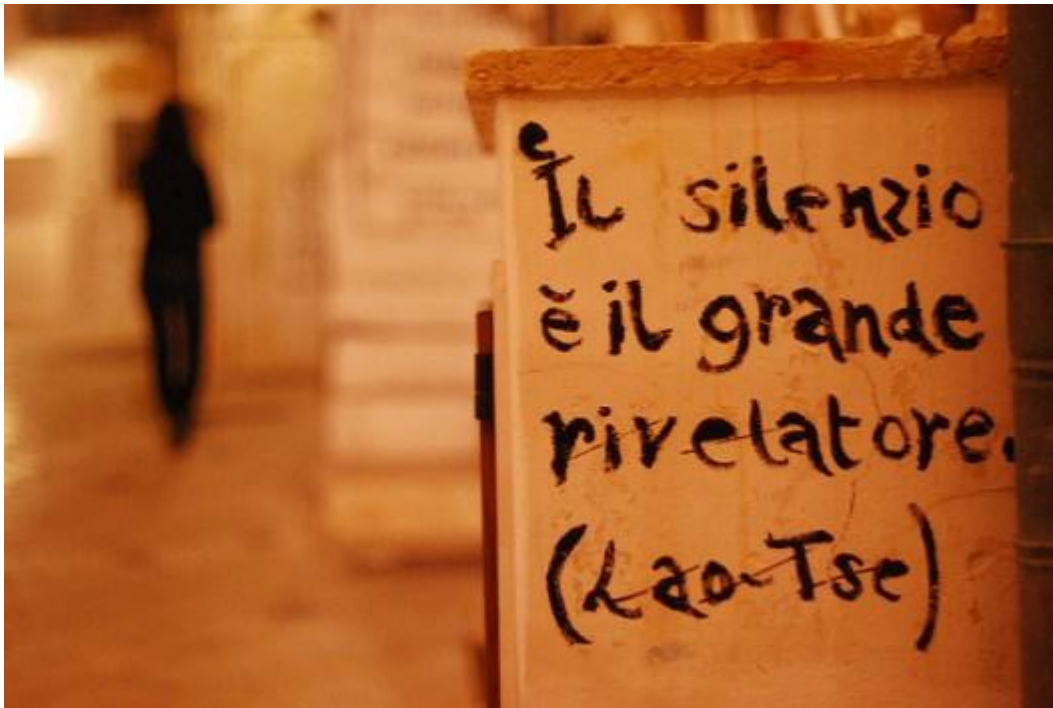 e
Il silenzio
è il grande
rivelatore.
(Lao-Tse)